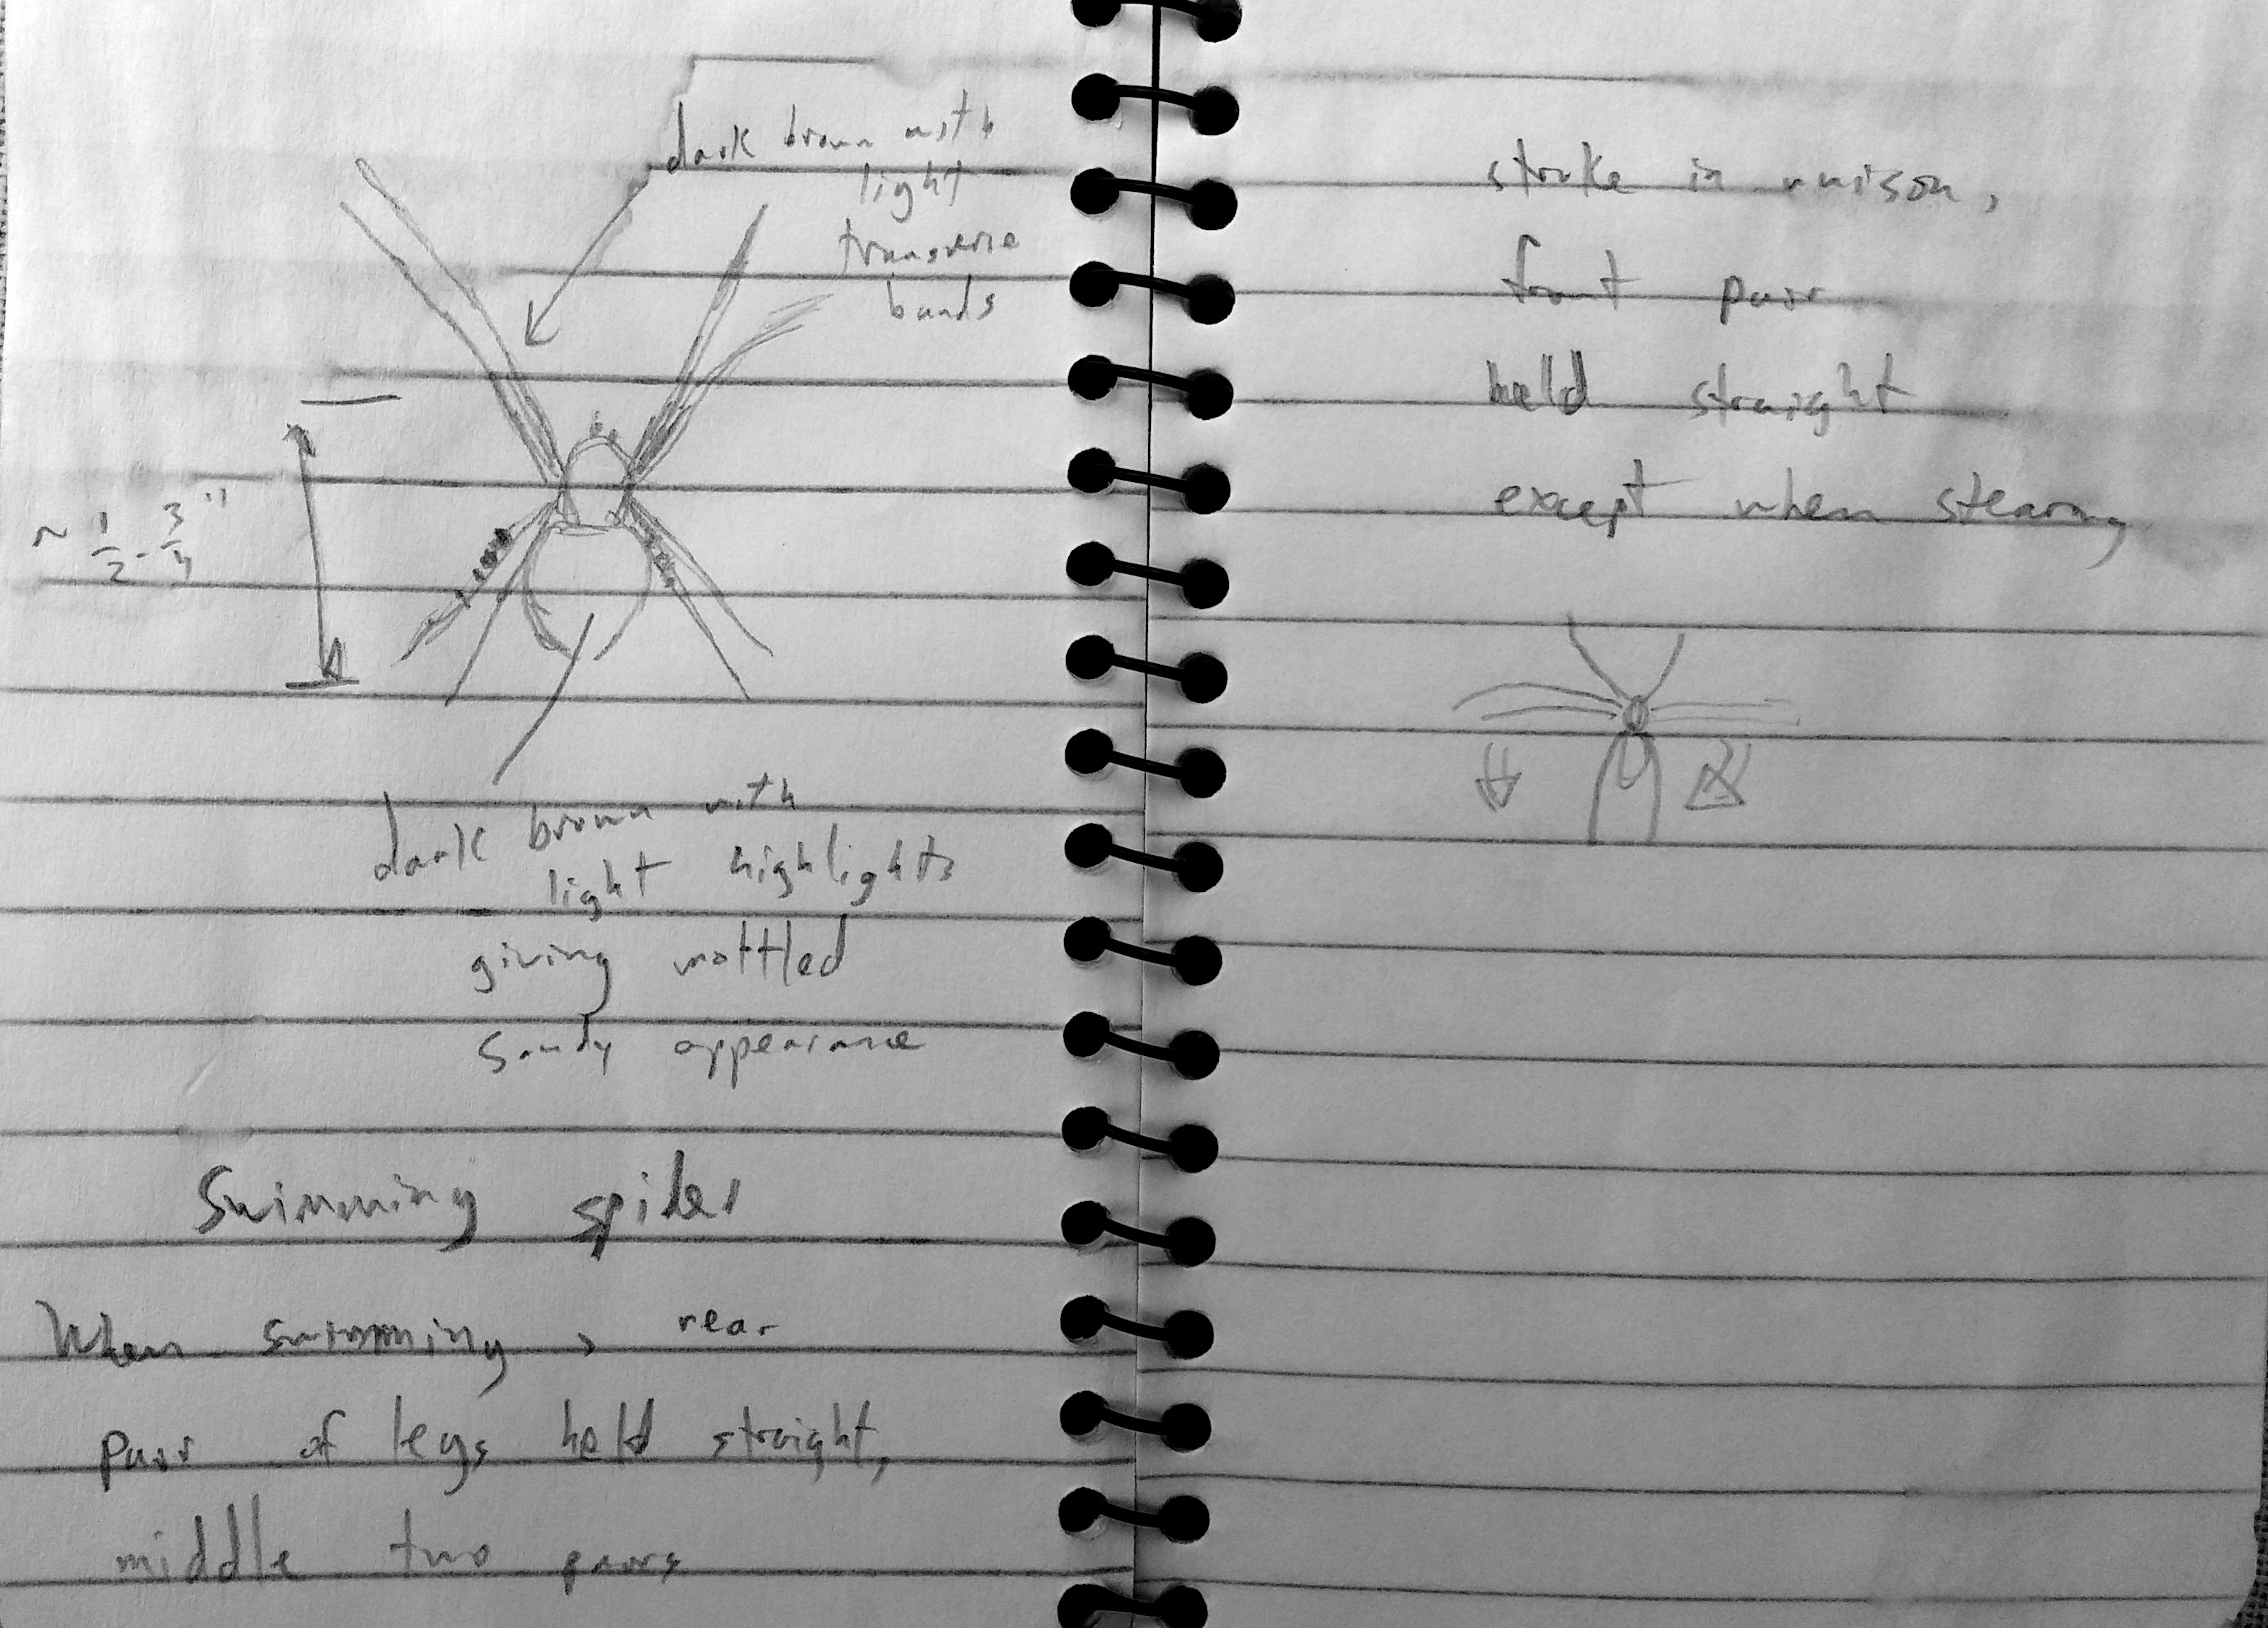 dark brown with
light
transverse
bands
~ 1/2 - 3/4"
dark brown with
light highlights
giving mottled
sandy appearance
Swimming spider
When swimming, rear
pair of legs held straight,
middle two pairs
stroke in unison,
front pair
held straight
except when stearing